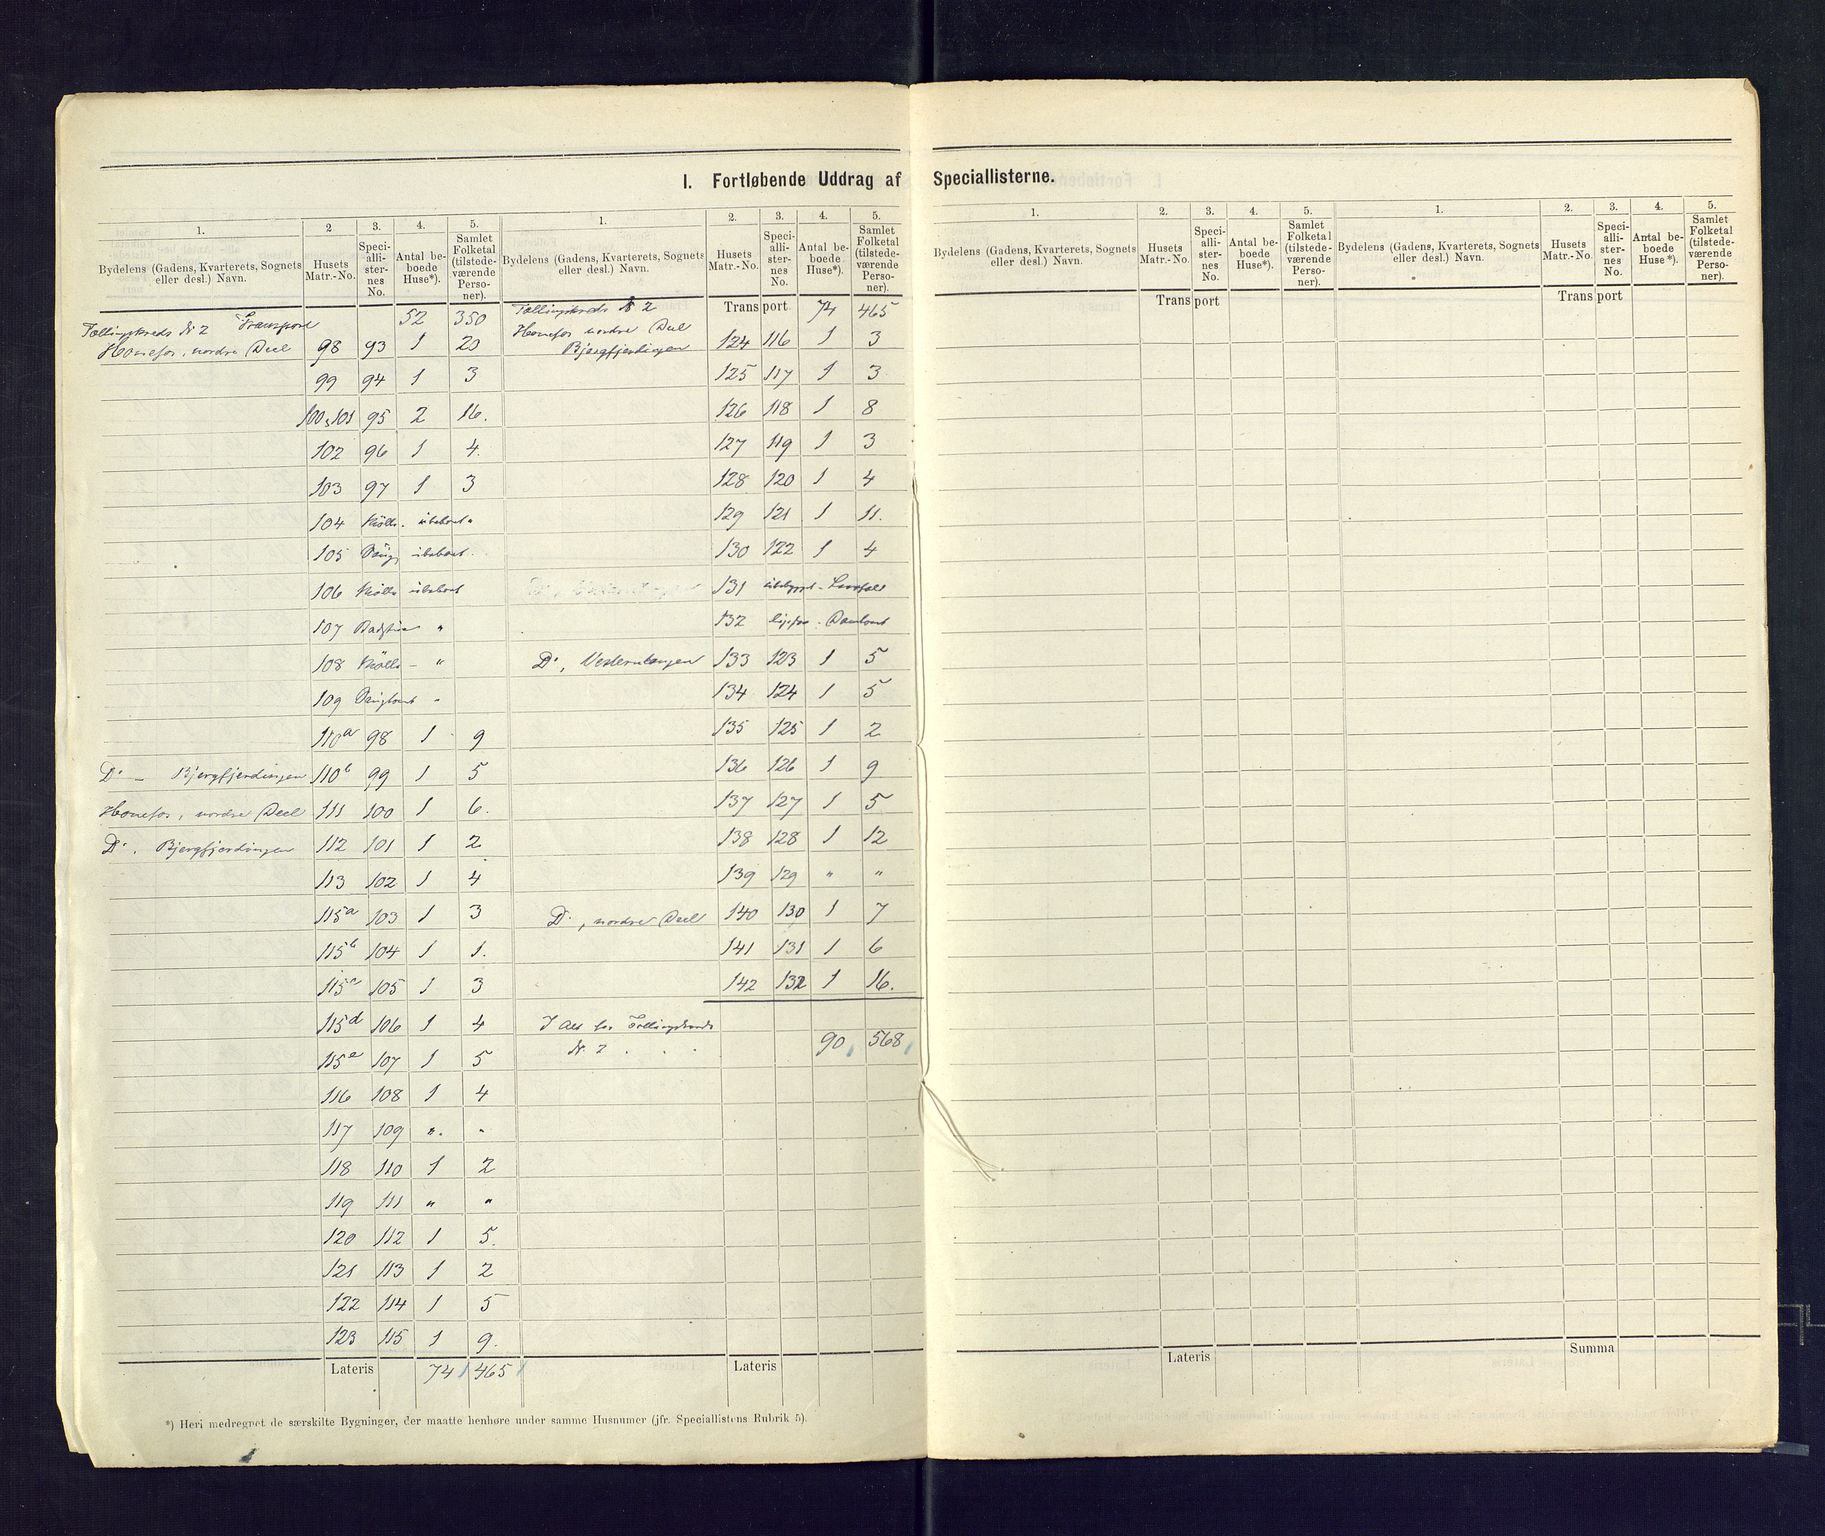 I. Fortløbende Uddrag af Speciallisterne.
1. 2 3. 4. 5.
Bydelens (Gadens, Kvarterets, Sognets eller desl.) Navn. Husets Matr.-No. Speciallisternes No. Antal beboede Huse*). Samlet Folketal (tilstedeværende Personer).
Tællingskreds № 2 Transport 52 350
Hønefos, nordre Deel 98 93 1 20
99 94 1 3
100, 101 95 2 16.
102 96 1 4.
103 97 1 3
104 Mølle. ubeboet.
105 ubeboet.
106 Mølle ubeboet
107 Badstue "
108 Mølle - "
109 "
110a 98 1 9
Do - Bjergfjerdingen 110b 99 1 5
Hønefos, nordre Deel 111 100 1 6.
Do. Bjergfjerdingen 112 101 1 2
113 102 1 4
115a 103 1 3
115b 104 1 1.
115c 105 1 3
115d 106 1 4
115e 107 1 5
116 108 1 4
117 109 ". "
118 110 1 2
119 111 " "
120 112 1 5.
121 113 1 2
122 114 1 5
123 115 1 9.
Lateris 74 465
1. 2. 3. 4. 5.
Bydelens (Gadens, Kvarterets, Sognets eller desl.) Navn. Husets Matr.-No. Speciallisternes No. Antal beboede Huse*). Samlet Folketal (tilstedeværende Personer).
Tællingskreds № 2 Transport 74 465
Hønefos nordre Deel
Bjergfjerdingen 124 116 1 3
125 117 1 3
126 118 1 8
127 119 1 3
128 120 1 4
129 121 1 11.
130 122 1 4
131 ubebygget.
132 ligesaa.
Do, Vesterntangen 133 123 1 5
134 124 1 5
135 125 1 2
136 126 1 9
137 127 1 5
138 128 1 12
139 129 " "
Do, nordre Deel 140 130 1 7
141 131 1 6
142 132 1 16.
I Alt for Tællingskreds
№. 2 . . . 90 568
Lateris
*) Heri medregnet de særskilte Bygninger, der maatte henhøre under samme Husnumer (jfr. Speciallistens Rubrik 5).
1. 2. 3. 4. 5.
Bydelens (Gadens, Kvarterets, Sognets eller desl.) Navn. Husets Matr.-No. Speciallisternes No. Antal beboede Huse*). Samlet Folketal (tilstedeværende Personer).
Transport
Lateris
1. 2. 3. 4. 5.
Bydelens (Gadens, Kvarterets, Sognets eller desl.) Navn. Husets Matr.-No. Speciallisternes No. Antal beboede Huse*). Samlet Folketal (tilstedeværende Personer).
Transport
Summa